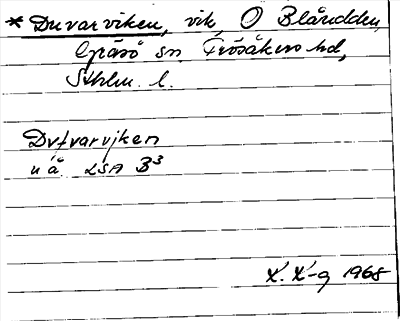 * Duvarviken, vik, O Blåudden,
Gräsö sn. Frösåkers hd,
Sthlm. l.
Dufvarvijken
u å LSA B³
1968